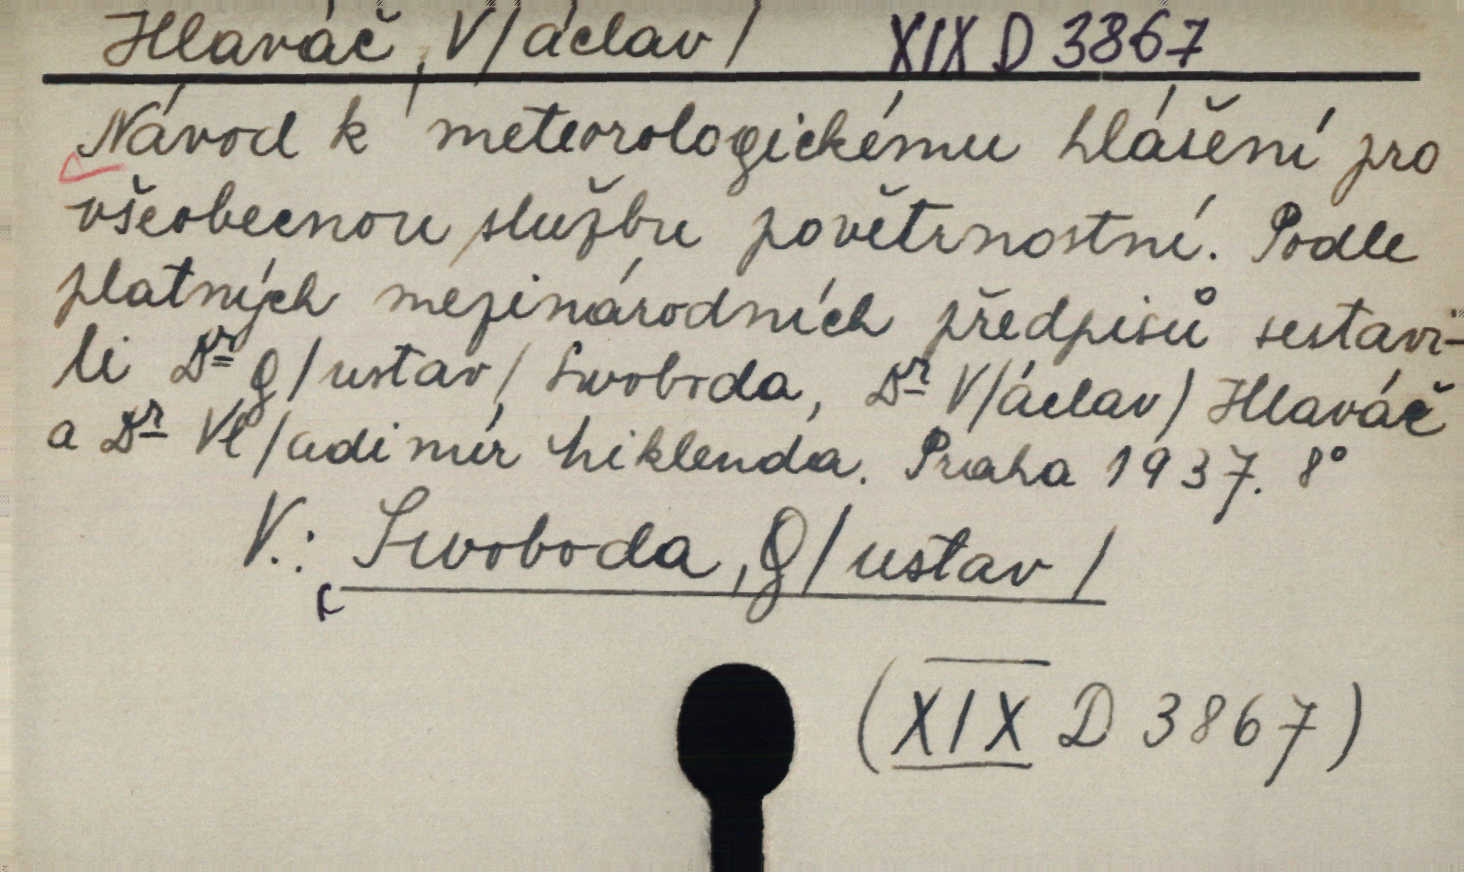 Hlaváč, V/áclav/ XIX D 3867
Návod k meteorologickému hlášení pro
všeobecnou službu povětrnostní. Podle
platných mezinárodních předpisů sestavi-
li Dr G/ustav/ Swoboda, Dr V/áclav/ Hlaváč
a Dr Vl/adimír Liklenda. Praha 1937. 8°
V.: Swoboda, G/ustav/
(XIX D 3867)